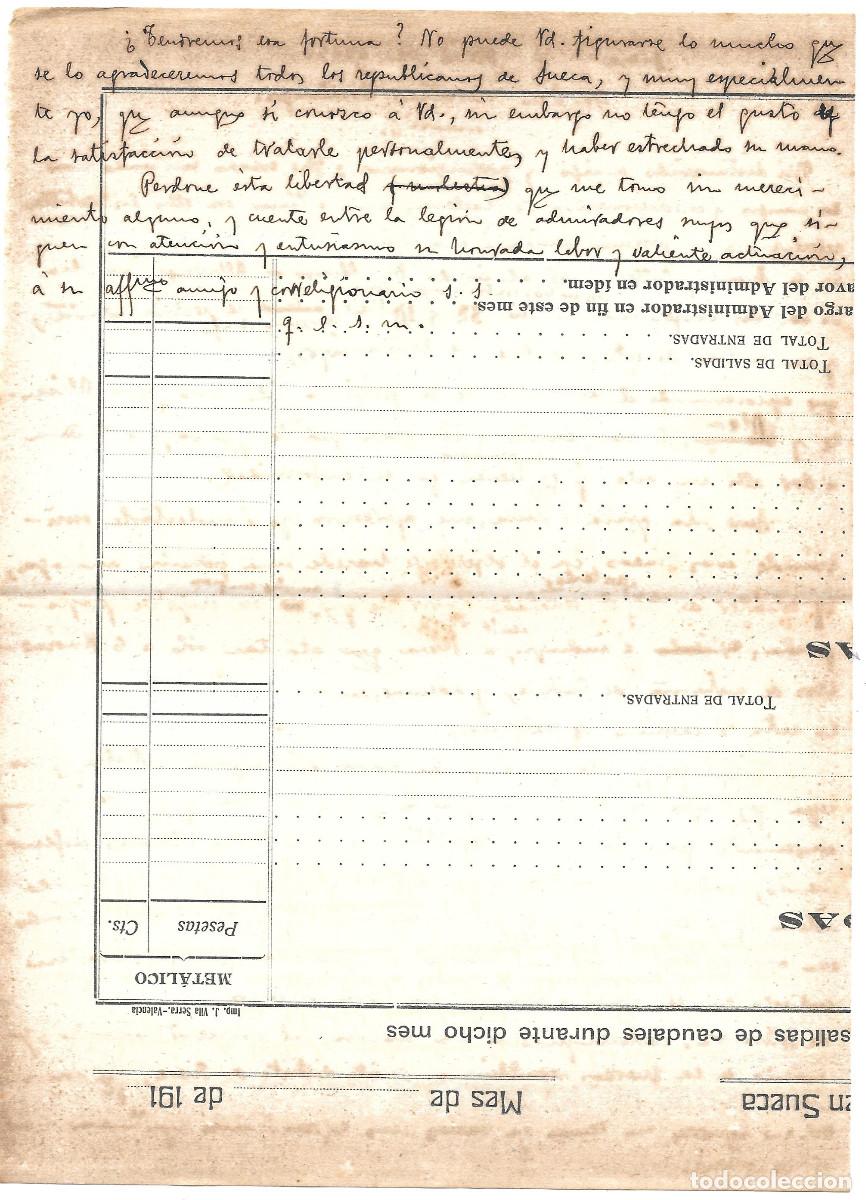 ¿Tendremos esa fortuna? No puede Vd. figurarse lo mucho que
se lo agradeceremos todos los republicanos de Sueca, y muy especialmen-
te yo, que aunque si conozco á Vd., sin embargo no tengo el gusto y
la satisfacción de tratarle personalmente, y haber estrechado su mano.
Perdone esta libertad que me tomo sin mereci-
miento alguno, y cuente entre la legión de admiradores suyos que, si-
guen con atención y entusiasmo su honrada labor y valiente actuación,
á su affmo amigo y correligionario s. s.
q. e. s. m.
avor del Administrador en ídem.
argo del Administrador en fin de este mes.
TOTAL DE ENTRADAS.
TOTAL DE SALIDAS.
AS
TOTAL DE ENTRADAS.
DAS
Pesetas Cts.
METÁLICO
Imp. J. Vila Serra.-Valencia
salidas de caudales durante dicho mes
en Sueca Mes de de 191
todocoleccion